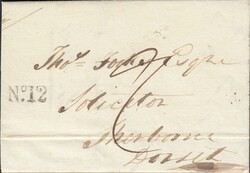 Thos. Esqre
No. 12
Solicitor
Sherborne
Dorset